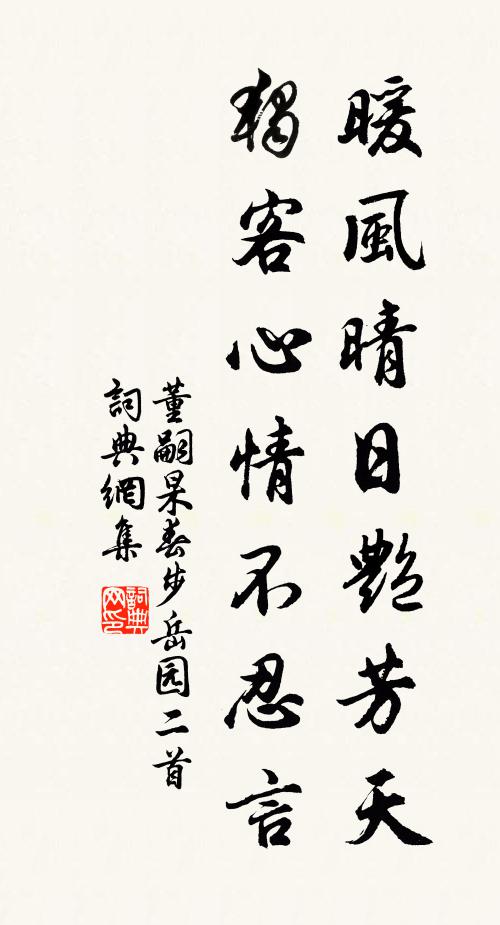 暖風晴日艷芳天
獨客心情不忍言
董嗣杲春步岳园二首
詞典網集
詞典网印